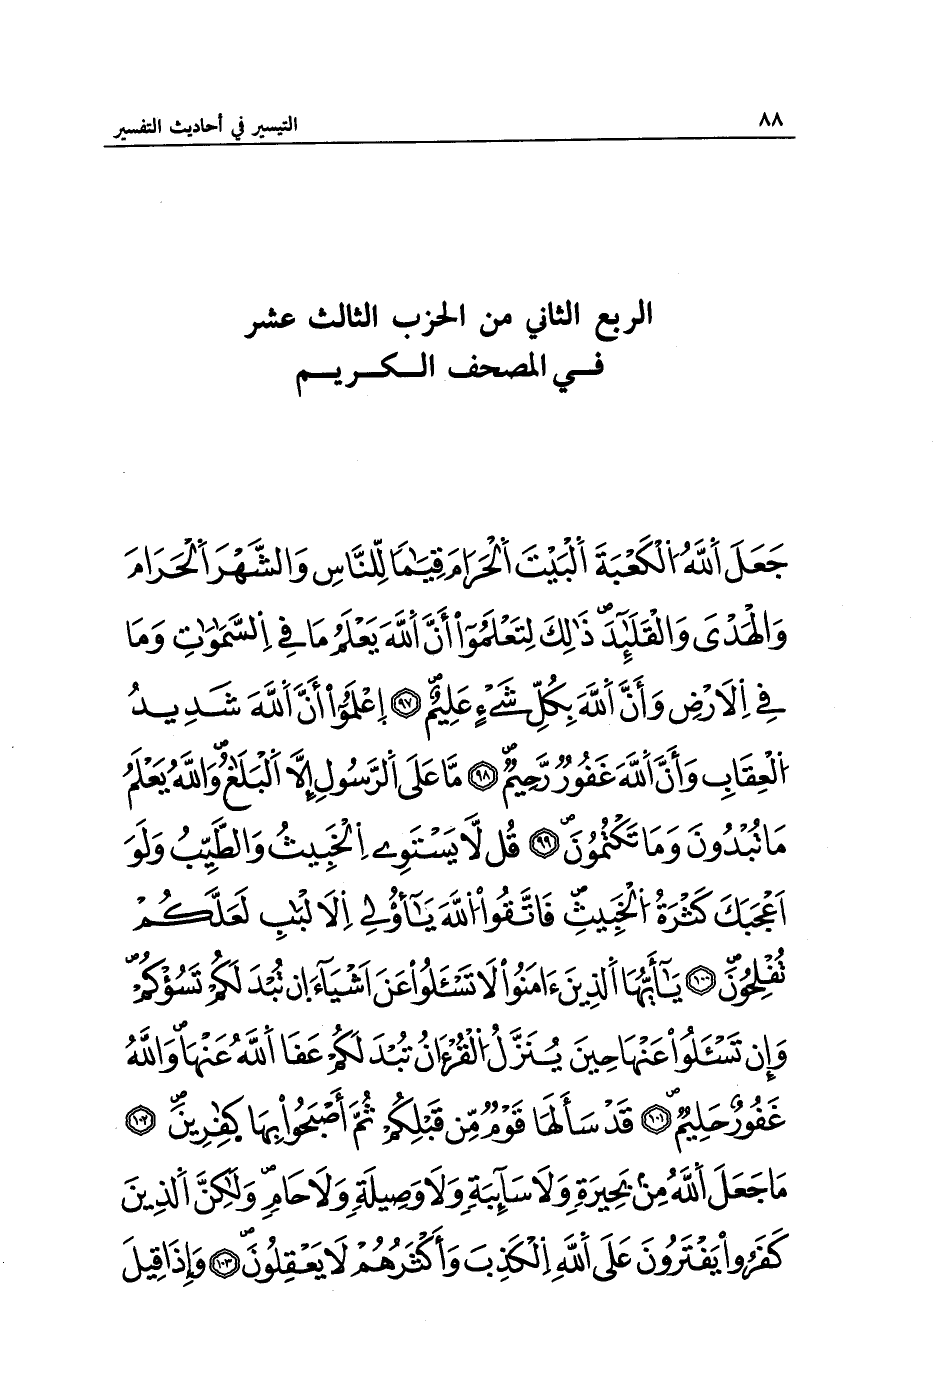 ٨٨
التيسير في أحاديث التفسير
الربع الثاني من الحزب الثالث عشر
في المصحف الكريم
جَعَلَ اَللَّهُ اُلْكَعْبَةَ اَلْبَيْتَ اَلْحَرَامَ قِيَٰمًا لِّلنَّاسِ وَالشَّهْرَ اَلْحَرَامَ
وَالْهَدْىَ وَالْقَلَٰٓئِدَۖ ذَٰلِكَ لِتَعْلَمُوٓاْ أَنَّ اَللَّهَ يَعْلَمُ مَا فِے اِلسَّمَٰوَٰتِ وَمَا
فِے اِلَارْضِ وَأَنَّ اَللَّهَ بِكُلِّ شَےْءٍ عَلِيمٌۖ ٩٧ اِعْلَمُوٓاْ أَنَّ اَللَّهَ شَدِيدُ
اُلْعِقَابِ وَأَنَّ اَللَّهَ غَفُورٌ رَّحِيمٌۖ ٩٨ مَّا عَلَى اَلرَّسُولِ إِلَّا اَلْبَلَٰغُۖ وَاللَّهُ يَعْلَمُ
مَا تُبْدُونَ وَمَا تَكْتُمُونَۖ ٩٩ قُل لَّا يَسْتَوِے اِلْخَبِيثُ وَالطَّيِّبُ وَلَوَ
اَعْجَبَكَ كَثْرَةُ اُلْخَبِيثِۖ فَاتَّقُواْ اُللَّهَ يَٰٓأُوْلِے اِلَالْبَٰبِ لَعَلَّكُمْ
تُفْلِحُونَۖ ١٠٠ يَٰٓأَيُّهَا اَلذِينَ ءَامَنُواْ لَا تَسْـَٔلُواْ عَنَ اَشْيَآءَ ان تُبْدَ لَكُمْ تَسُؤْكُمْۖ
وَإِن تَسْـَٔلُواْ عَنْهَا حِينَ يُنَزَّلُ اُلْقُرْءَانُ تُبْدَ لَكُمْ عَفَا اَللَّهُ عَنْهَاۖ وَاللَّهُ
غَفُورٌ حَلِيمٌۖ ١٠١ قَدْ سَأَلَهَا قَوْمٌ مِّن قَبْلِكُمْ ثُمَّ أَصْبَحُواْ بِهَا كَٰفِرِينَۖ ١٠٢
مَا جَعَلَ اَللَّهُ مِنۢ بَحِيرَةٍ وَلَا سَآئِبَةٍ وَلَا وَصِيلَةٍ وَلَا حَامٍۖ وَلَٰكِنَّ اَلذِينَ
كَفَرُواْ يَفْتَرُونَ عَلَى اَللَّهِ اِلْكَذِبَ وَأَكْثَرُهُمْ لَا يَعْقِلُونَۖ ١٠٣ وَإِذَا قِيلَ